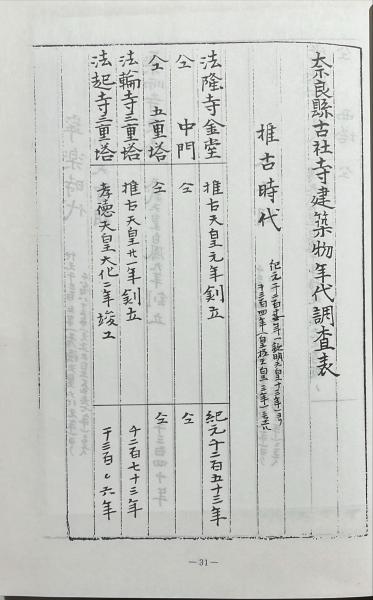 奈良縣古社寺建築物年代調査表
推古時代
紀元千二百十二年(欽明天皇十三年)ヨリ
千三百四年(皇極天皇三年)ニ至ル
法隆寺金堂 推古天皇元年創立 紀元千二百五十三年
仝 中門 仝 仝
仝 五重塔 仝 仝
法輪寺三重塔 推古天皇廿一年創立 千二百七十三年
法起寺三重塔 孝德天皇大化二年竣工 千三百〇六年
—31—